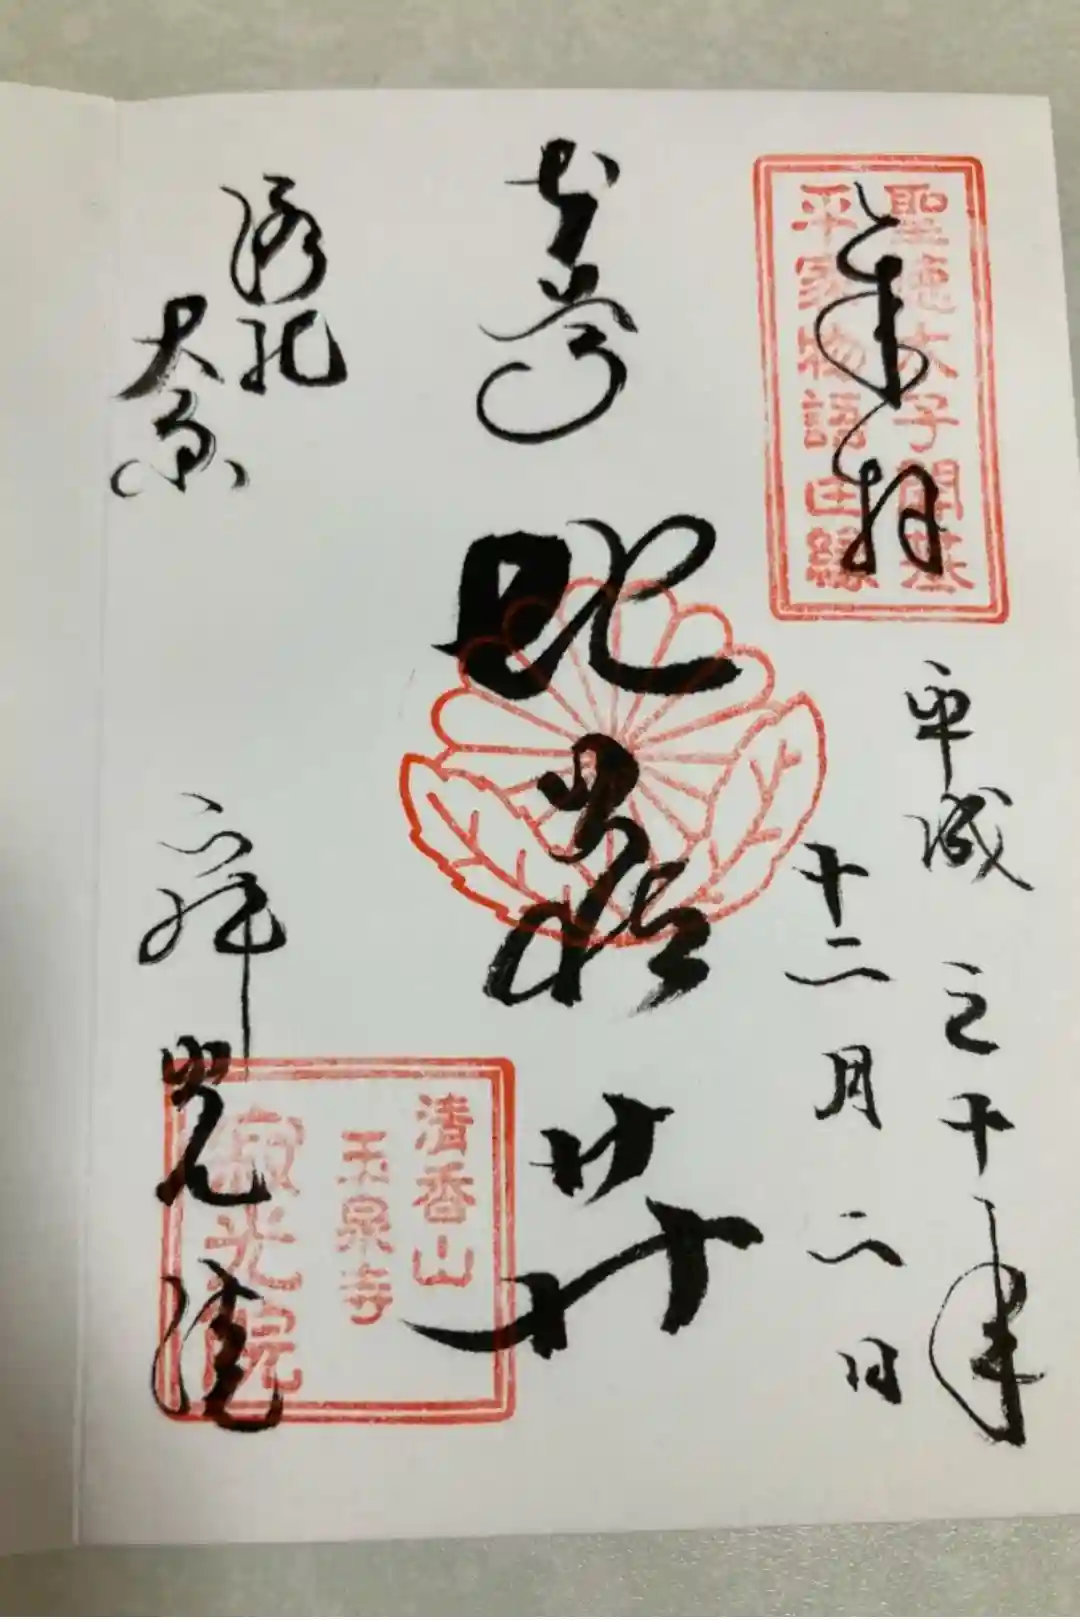 聖徳太子開基
平家物語由縁
奉拝
平成三十年
十二月二日
本尊
地蔵菩薩
洛北
大原
寂光院
清香山
玉泉寺
寂光院